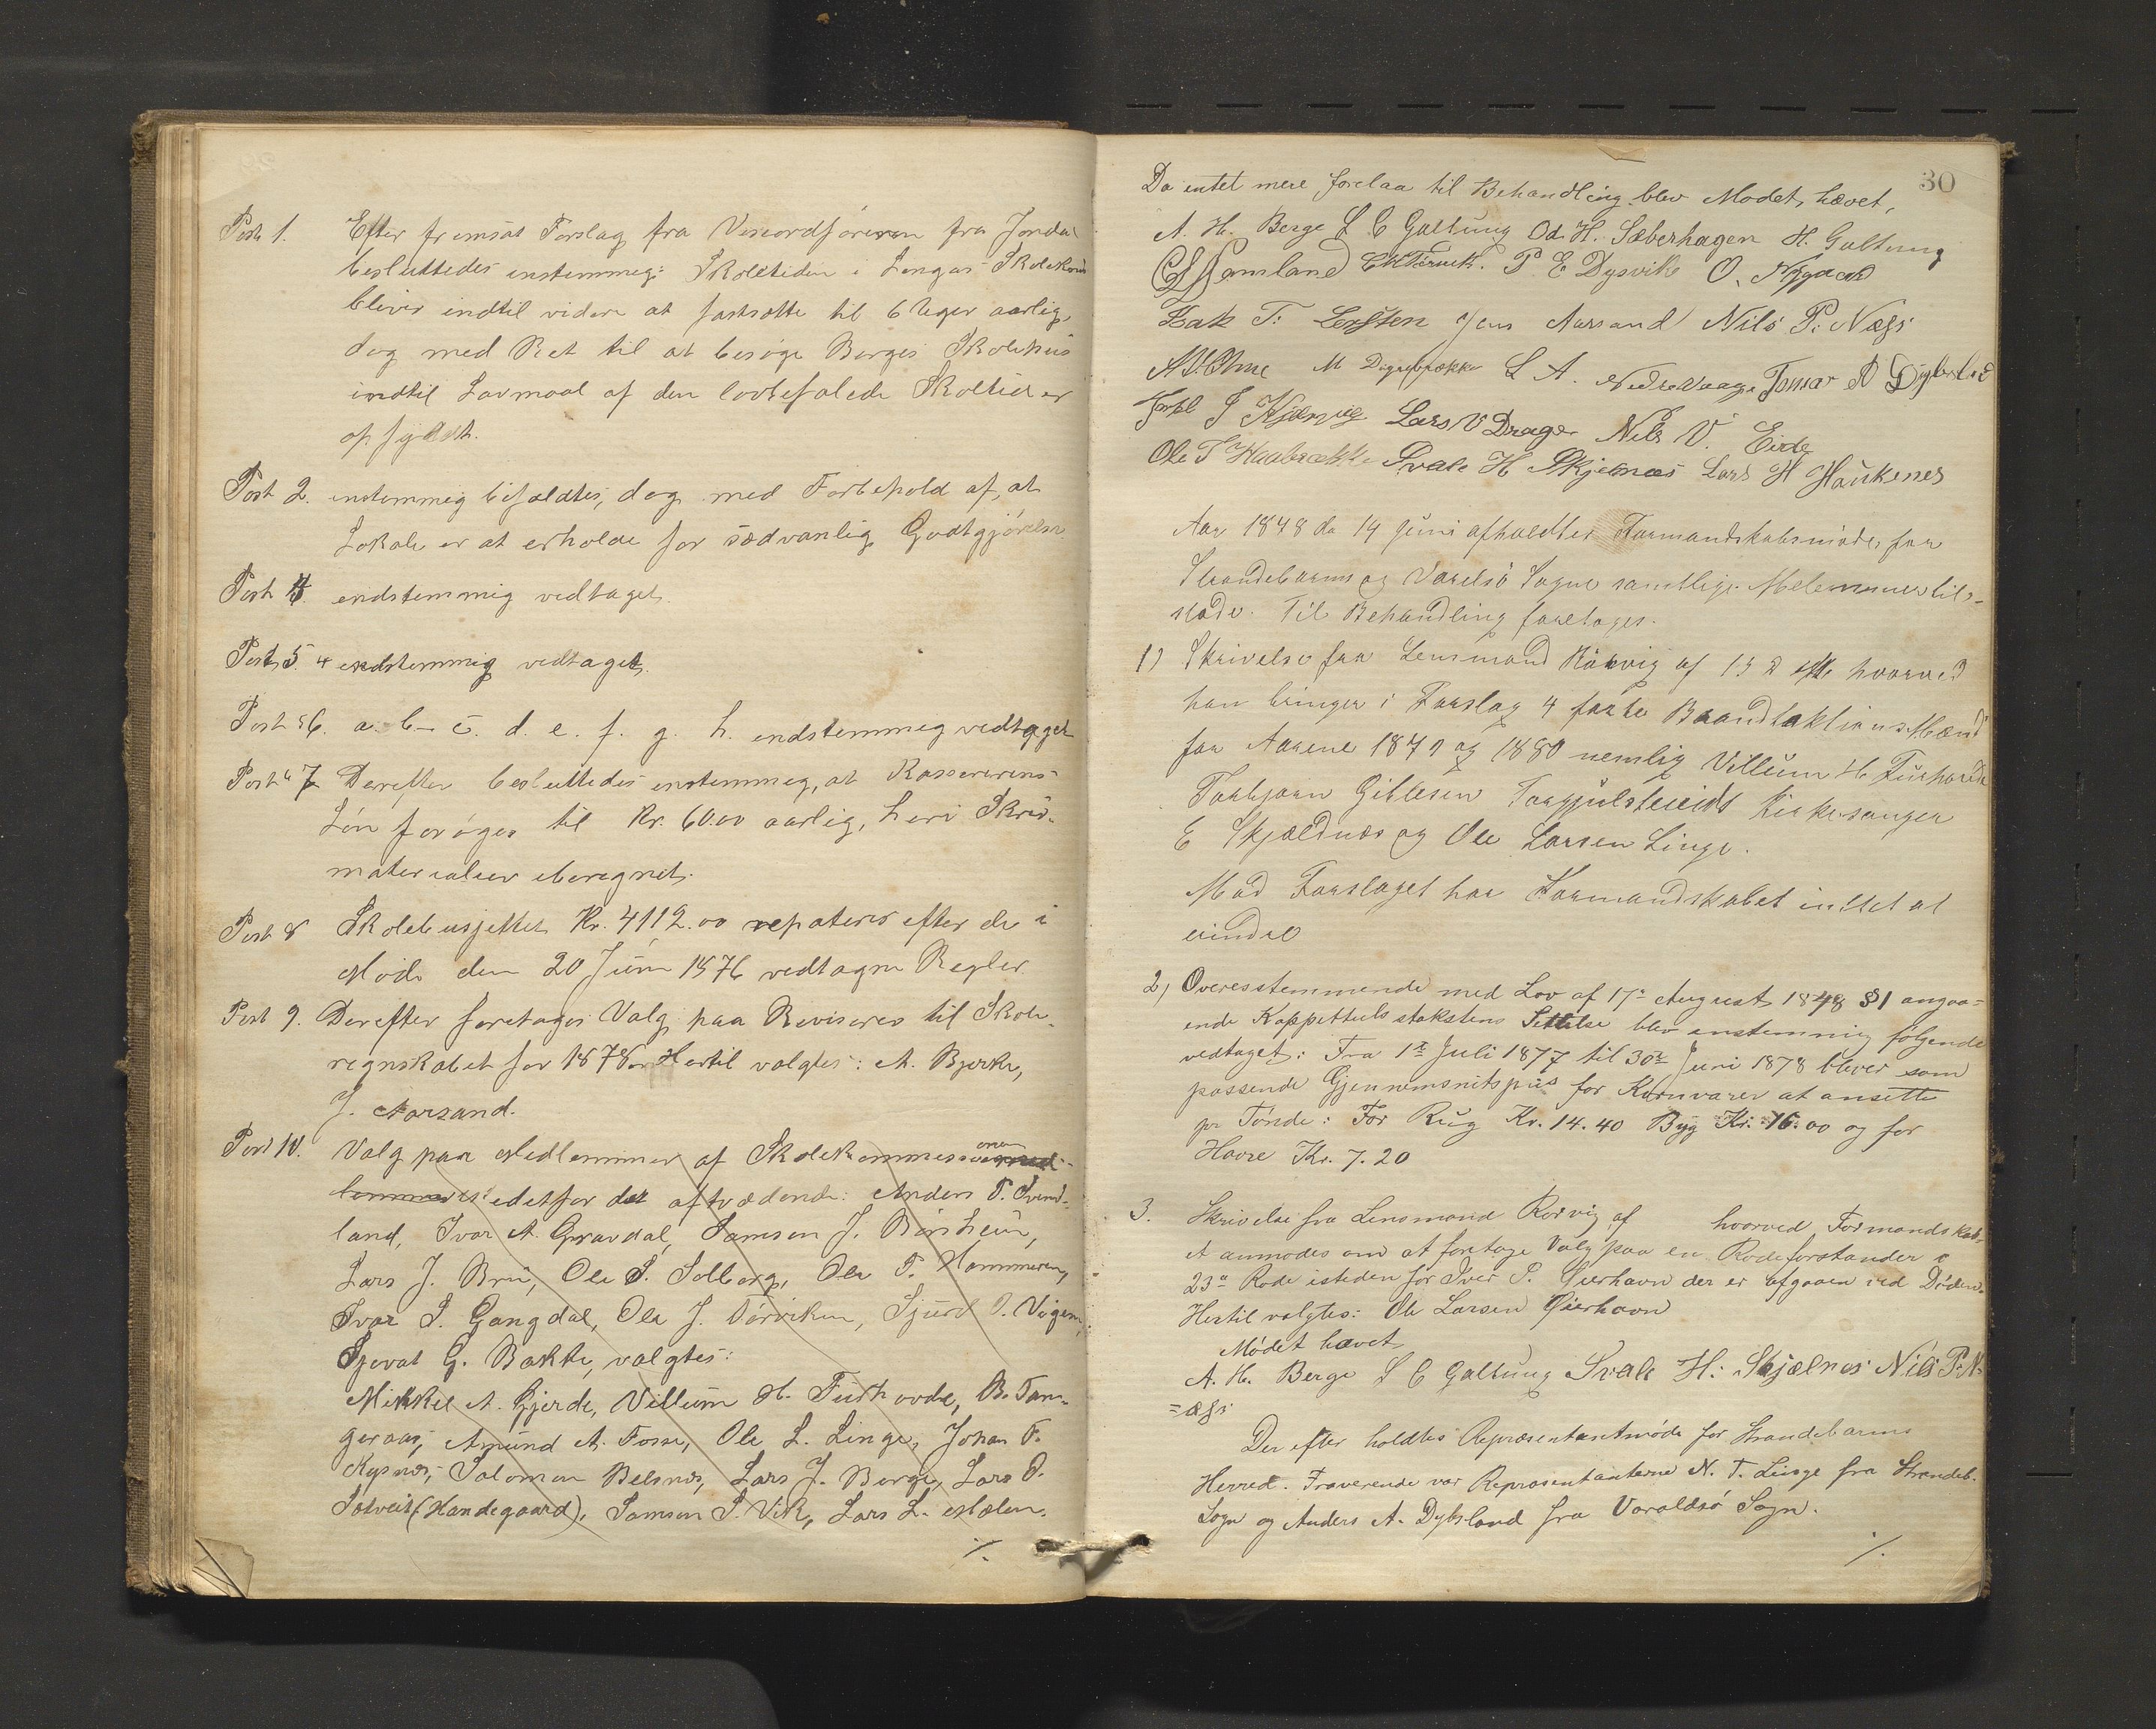 Post 1. Efter fremsat Forslag fra Viseordføreren fra Jondal
besluttedes enstemmig: Skoletiden i Lingas Skolekreds
bliver indtil videre at fastsætte til 6 Uger aarlig,
dog med Ret til at besøge Berges Skolehus
indtil Lavmaal af den lovbefalede Skoletid er
opfyldt.
Post 2. enstemmig bifaldtes, dog med Forbehold af, at
Lokale er at erholde for sædvanlig Godtgjørelse
Post 4. endstemmig vedtaget.
Post 5. 4 endstemmig vedtaget.
Post 6. a. b. c. d. e. f. g. h. endstemmig vedtaget
Post 7 Derefter besluttedes enstemmig, at Kassererens
Løn forøges til Kr. 60.00 aarlig, heri Skriv-
materialier iberegnet.
Post 8 Skolebusjettet Kr. 4112.00 repateres efter de i
Møde den 20 Juni 1876 vedtagne Regler.
Post 9. Derefter foretoges Valg paa Revisorer til Skole-
regnskabet for 1878. Hertil valgtes: A. Bjerke,
J. Aarsand.
Post 10. Valg paa Medlemmer af Skolekommissionen
istedetfor de aftrædende: Anders T. Svend-
land, Ivar A. Gravdal, Samson J. Børsheim,
Lars J. Bru, Ole S. Solberg, Ole T. Hammeren,
Ivar S. Gangdal, Ole J. Tørviken, Sjurd O. Vigen,
Sjovat G. Bakke, valgtes:
Mikkel A. Gjerde, Villum H. Furhovde, B. Tan-
geraas, Amund A. Fosse, Ole L. Linge, Johan T.
Kysnes, Salomon Belsnes, Lars J. Berge, Lars O.
Solveit (Handegaard), Samson S. Vik, Lars L. Mælen.
./.
30
Da intet mere forelaa til Behandling blev Modet hævet,
A. H. Berge L C Galtung Od. H. Sæberhagen H. Galtung
Samland P. E Dysvik O. Nygaard
Zak T: Jens Aarsand Nils P. Næss
M Digrebrække L A. Nedrevaage Tomas A Dybsland
J Kjærvig Lars V Drager Nils V. Eide
Ole T Haabrække Svale H Skjelnæs Lars H Haukenes
Aar 1878 de 14 Juni afholdtes Formandskabsmøde for
Strandebarms og Varelsø Sogne samtlige Melemmer til-
stæde. Til Behandling foretoges.
1) Skrivelse fra Lensmand Rørvig af 13 d M hvorved
han bringer i Forslag 4 faste Brandtaktions Mænd
for Aarene 1879 og 1880 nemlig Villum H Furhovde
Torbjørn Gitlesen Torgjulsteeidt Kirkesanger
E Skjældnæs og Ole Larsen Linge.
Mod Forslaget har Formandskabet intet at
erindre
2) Overesstemmende med Lov af 17de August 1848 § 1 angaa-
ende Kappettels stakstens Settelse blev enstemmig følgende
vedtaget: Fra 1ste Juli 1877 til 30te Juni 1878 bliver som
passende Gjennemsnitspris for Kornvarer at ansette
pr Tønde: For Rug Kr. 14.40 Byg Kr. 16.00 og for
Havre Kr. 7.20
3. Skrivelse fra Lensmand Rørvig af hvorved Formandskab-
et anmodes om at foretage Valg paa en Rodeforstander i
23de Rode isteden for Iver P. Gjerhavn der er afgaaen ved Døden.
Hertil valgtes: Ole Larsen Gjerhavn
Mødet hævet
A. H. Berge L C Galtung Svale H: Skjælnes Nils P. N-
=æss
Derefter holdtes Repræsentantmøde for Strandebarms
Herred. Fraverende var Repræsentanterne N. T. Linge fra Strandeb.
Sogn og Anders A. Dybsland fra Varaldsø Sogn.
./.